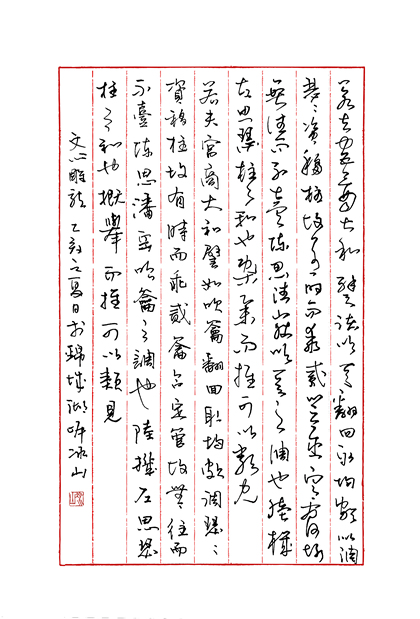 若夫宫商大和譬诸吹籥翻回取均颇似调
瑟〻资移柱故有时而乖贰籥含定管故
無往而不壹陈思潘岳吹籥之调也陸機
左思瑟柱之和也概举而推可以类见
若夫宫商大和譬如吹籥翻回取均颇調瑟〻
資移柱故有時而乖貳籥含定管故無往而
不壹陈思潘岳吹籥之調也陸機左思瑟
柱之和也概舉而推可以類見
文心雕龍 乙亥之夏日於錦城湖畔冰山